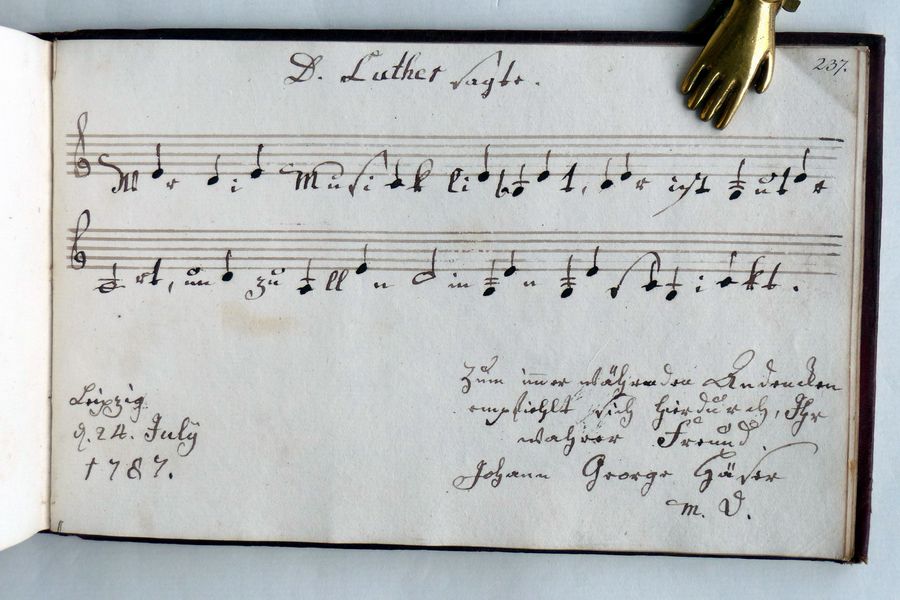 D. Luther sagte.
237.
Wer die Musick liebet, der ist guter
Art, und zu allen Dingen geschickt.
Leipzig
d. 24. July
1787.
Zum immer währenden Andencken
empfiehlt sich hierdurch, Ihr
wahrer Freund.
Johann George Häser
M. D.